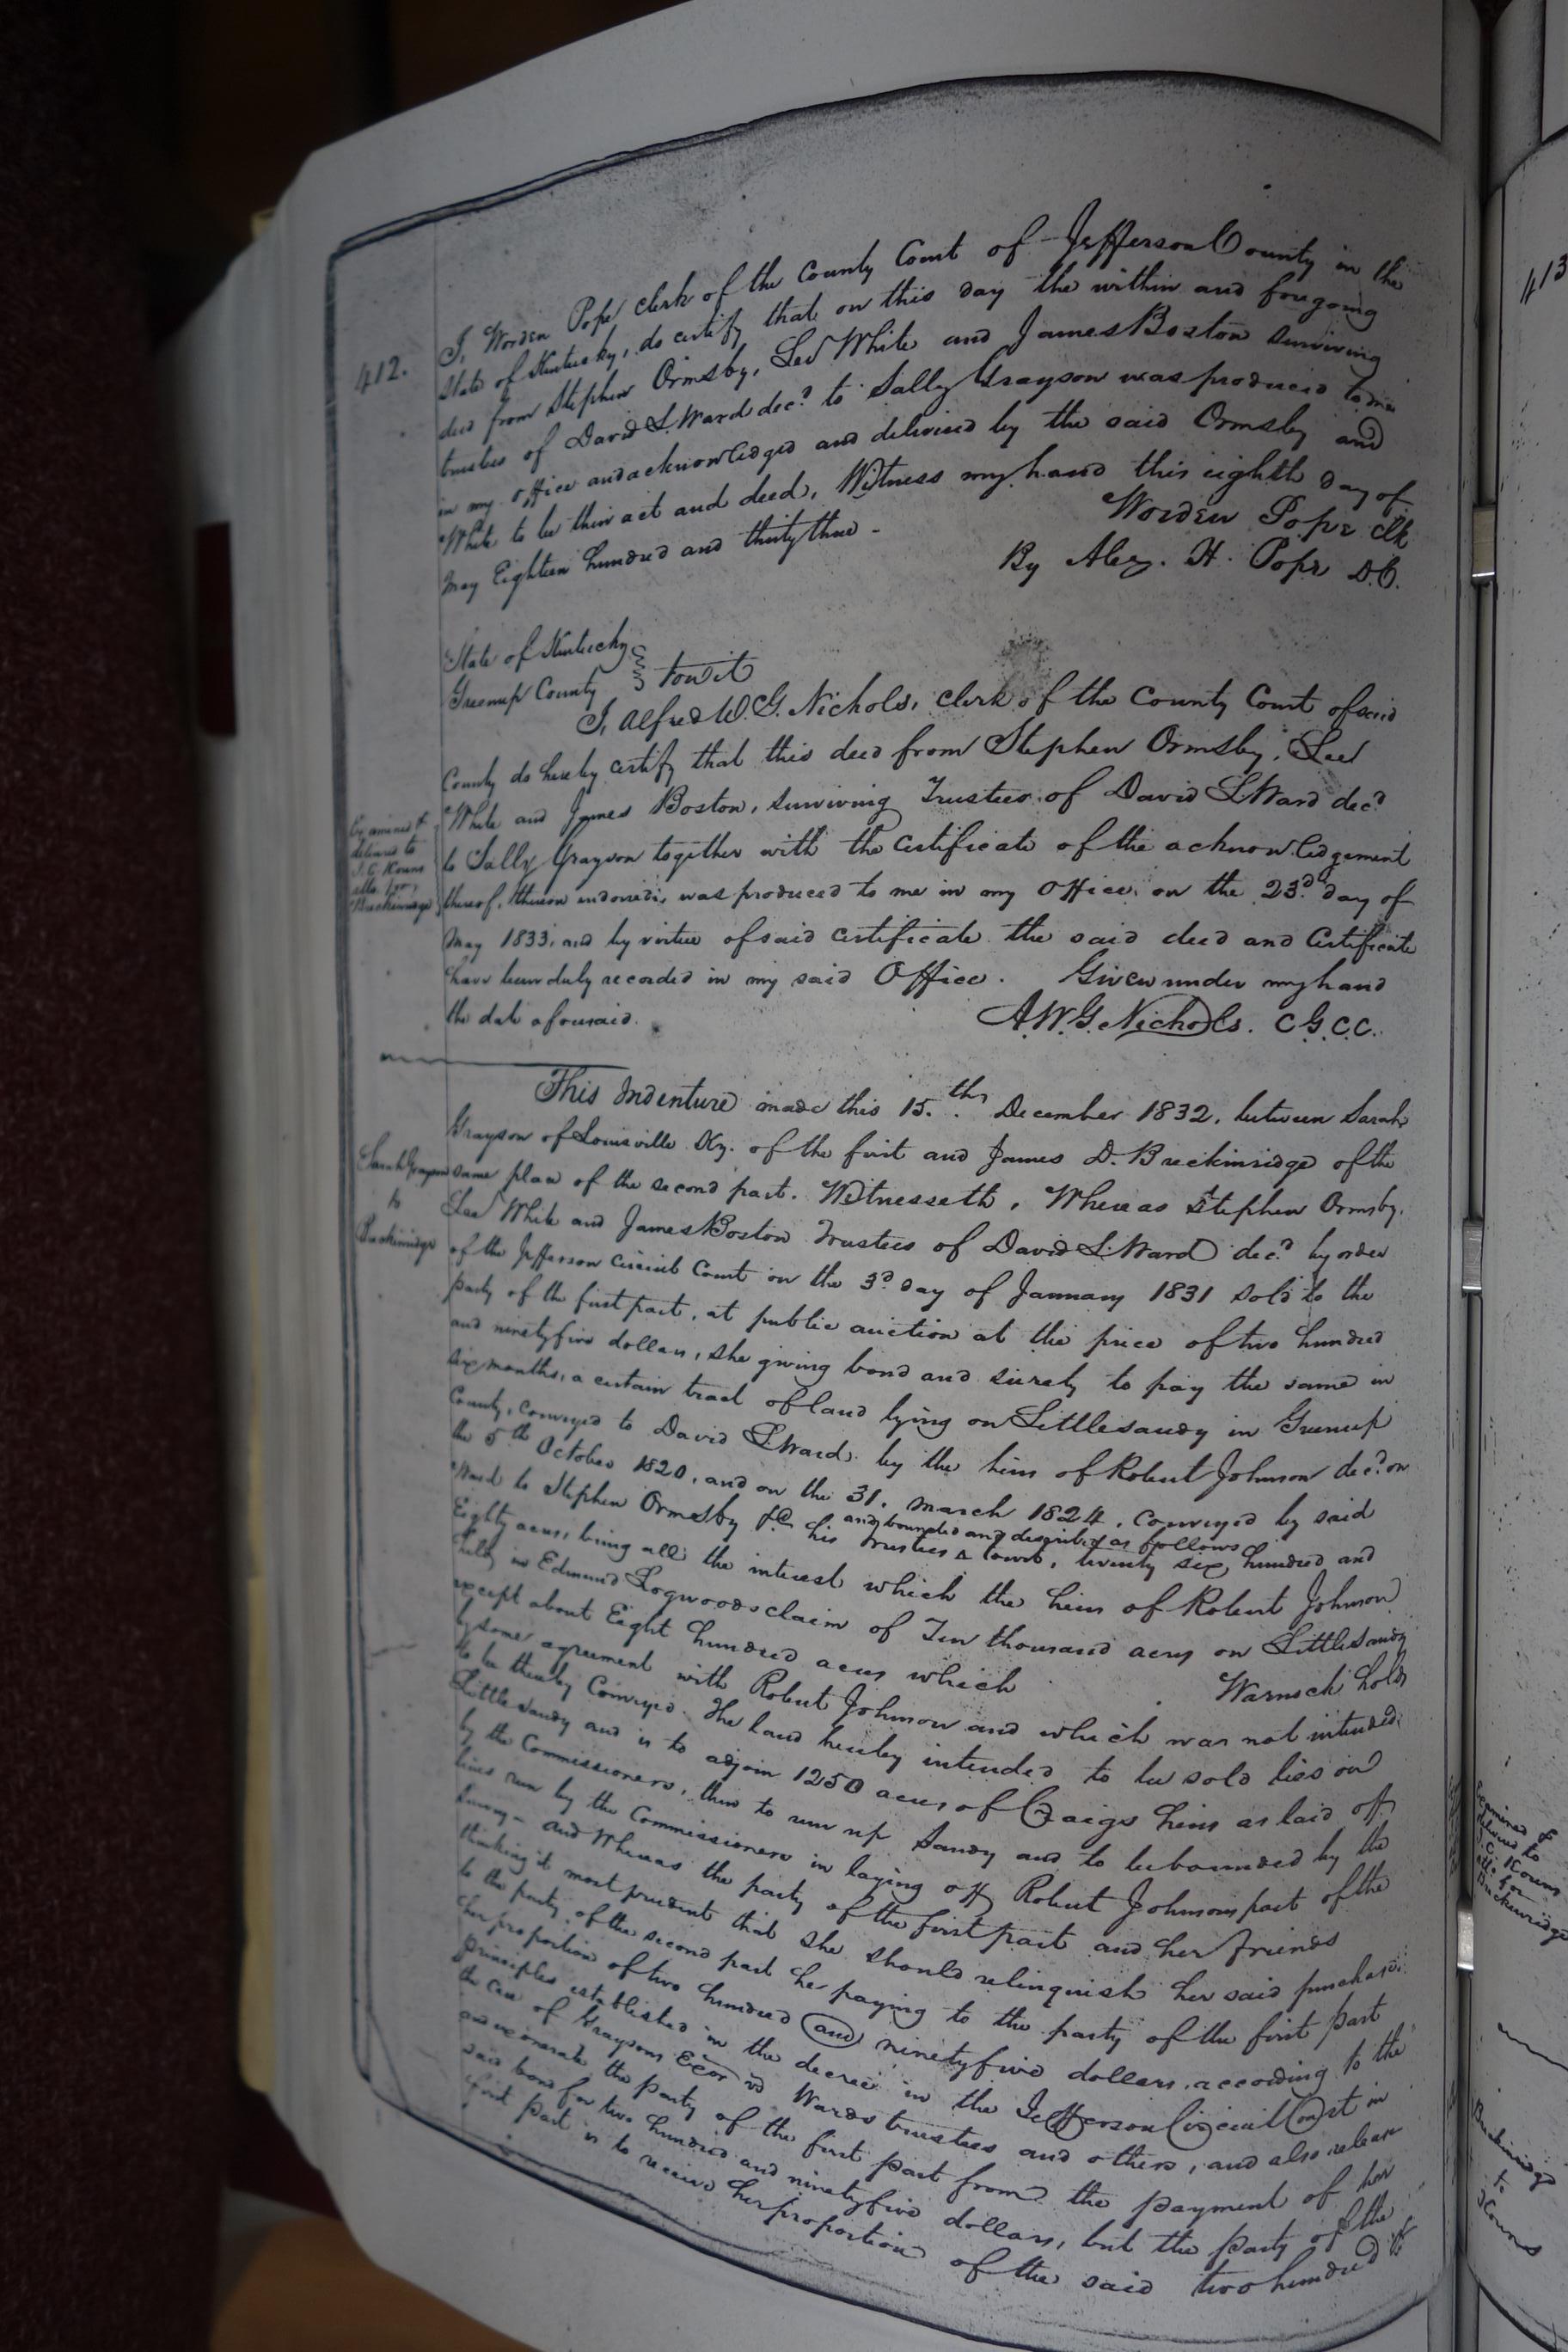 412.
I, Worden Pope clerk of the County Court of Jefferson County in the
State of Kentucky, do certify that on this day the within and foregoing
deed from Stephen Ormsby, Lee White and James Boston surviving
trustees of David L. Ward decd. to Sally Grayson was produced to me
in my office and acknowledged and delivered by the said Ormsby and
White to be their act and deed, Witness my hand this eighth day of
May Eighteen hundred and thirty three -
Worden Pope Clk
By Alex. H. Pope D.C.
State of Kentucky
Greenup County } towit
I, Alfred W. G. Nichols, clerk of the County Court of said
County do hereby certify that this deed from Stephen Ormsby, Lee
White and James Boston, surviving Trustees of David L Ward decd
to Sally Grayson together with the certificate of the acknowledgement
thereof, thereon endorsed, was produced to me in my Office on the 23d. day of
May 1833, and by virtue of said certificate the said deed and Certificate
have been duly recorded in my said Office. Given under my hand
the date aforesaid.
A.W.G. Nichols. C.G.C.C.
Examined &
delivered to
J. C. Kouns
atto for
Breckinridge
This Indenture made this 15.th December 1832, between Sarah
Grayson of Louisville Ky. of the first and James D. Breckinridge of the
same place of the second part. Witnesseth, Whereas Stephen Ormsby,
Lee White and James Boston Trustees of David L. Ward decd by order
of the Jefferson Circuit Court on the 3d day of January 1831 sold to the
party of the first part, at public auction at the price of two hundred
and ninetyfive dollars, she giving bond and surety to pay the same in
six months, a certain tract of land lying on Little sandy in Greenup
County, conveyed to David L. Ward by the heirs of Robert Johnson decd. on
the 5th October 1820, and on the 31. March 1824, conveyed by said
Ward to Stephen Ormsby &C his trustees and bounded and described as follows towit, twenty six hundred and
Eighty acres, being all the interest which the heirs of Robert Johnson
held in Edmund Logwoods claim of Ten thousand acres on Little Sandy
except about Eight hundred acres which Warnock holds
by some agreement with Robert Johnson and which was not intended
to be thereby Conveyed. The land hereby intended to be sold lies on
Little sandy and is to adjoin 1250 acres of Craigs heirs as laid off
by the Commissioners, then to run up Sandy and to be bounded by the
lines run by the Commissioners in laying off Robert Johnsons part of the
Survey - and Whereas the party of the first part and her friends
thinking it most prudent that she should relinquish her said purchase
to the party of the second part he paying to the party of the first part
her proportion of two hundred and ninetyfive dollars, according to the
principles established in the decree in the Jefferson Circuit Court in
the Case of Graysons Exor vs Wards trustees and others, and also release
and exonerate the party of the first part from the payment of her
said bond for two hundred and ninetyfive dollars, but the party of the
first part is to receive her proportion of the said two hundred &
Sarah Grayson
to
Breckinridge
413
Examined &
delivered to
J. C. Kouns
atto for
Breckinridge
Breckinridge
to
Kouns